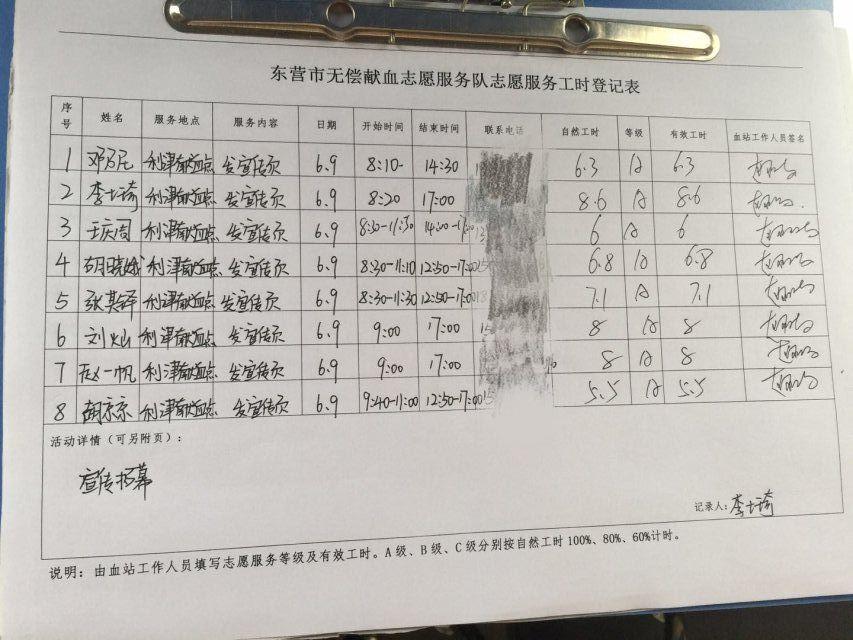 东营市无偿献血志愿服务队志愿服务工时登记表
序号 姓名 服务地点 服务内容 日期 开始时间 结束时间 联系电话 自然工时 等级 有效工时 血站工作人员签名
1 邓乃民 利津献血点 发宣传页 6.9 8:10- 14:30 6.3 A 6.3
2 李士琦 利津献血点 发宣传页 6.9 8:20 17:00 8.6 A 8.6
3 王庆周 利津献血点 发宣传页 6.9 8:30-11:30 14:00-17:00 6 A 6
4 胡晓娥 利津献血点 发宣传页 6.9 8:30-11:10 12:50-17:00 6.8 A 6.8
5 张其铎 利津献血点 发宣传页 6.9 8:30-11:30 12:50-17:00 7.1 A 7.1
6 刘灿 利津献血点 发宣传页 6.9 9:00 17:00 8 A 8
7 赵一帆 利津献血点 发宣传页 6.9 9:00 17:00 8 A 8
8 胡京京 利津献血点 发宣传页 6.9 9:40-11:00 12:50-17:00 5.5 A 5.5
活动详情（可另附页）：
宣传招募
记录人：李士琦
说明：由血站工作人员填写志愿服务等级及有效工时。A级、B级、C级分别按自然工时100%、80%、60%计时。